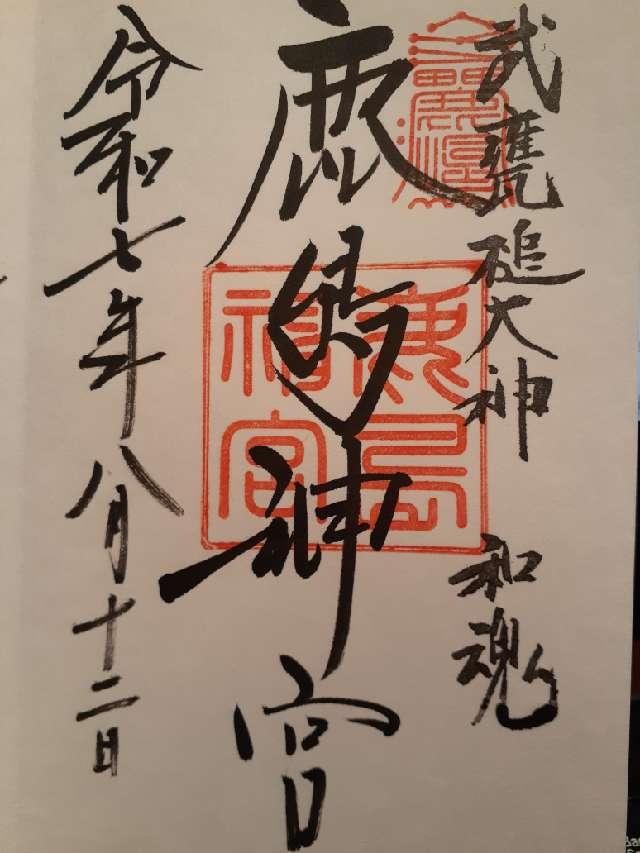 武甕槌大神 和魂
鹿島神宮
鹿島神宮
令和七年八月十二日